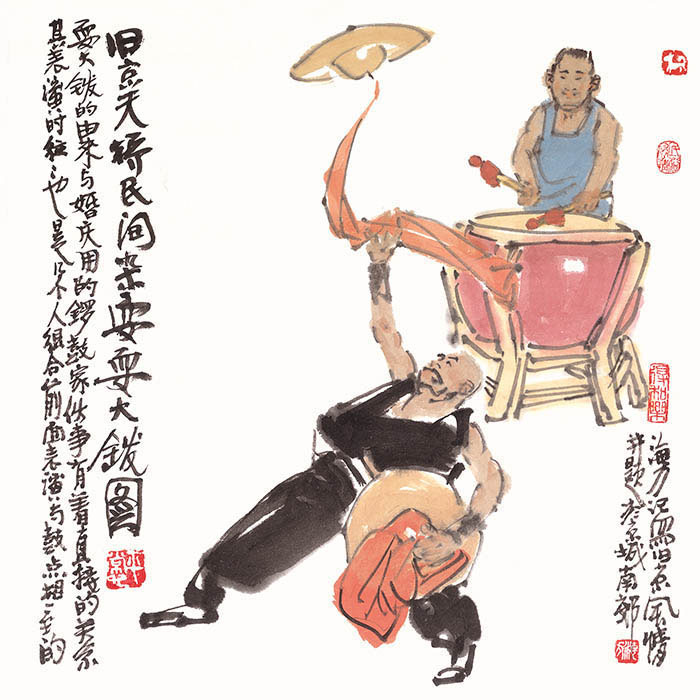 旧京天桥民间杂耍耍大钹图
耍大钹的由来与婚庆用的锣鼓家什事有着直接的关系
其表演时往々也是几个人组合前面表演与鼓点相一至的
海方记写旧京风情
并题於京城南郊